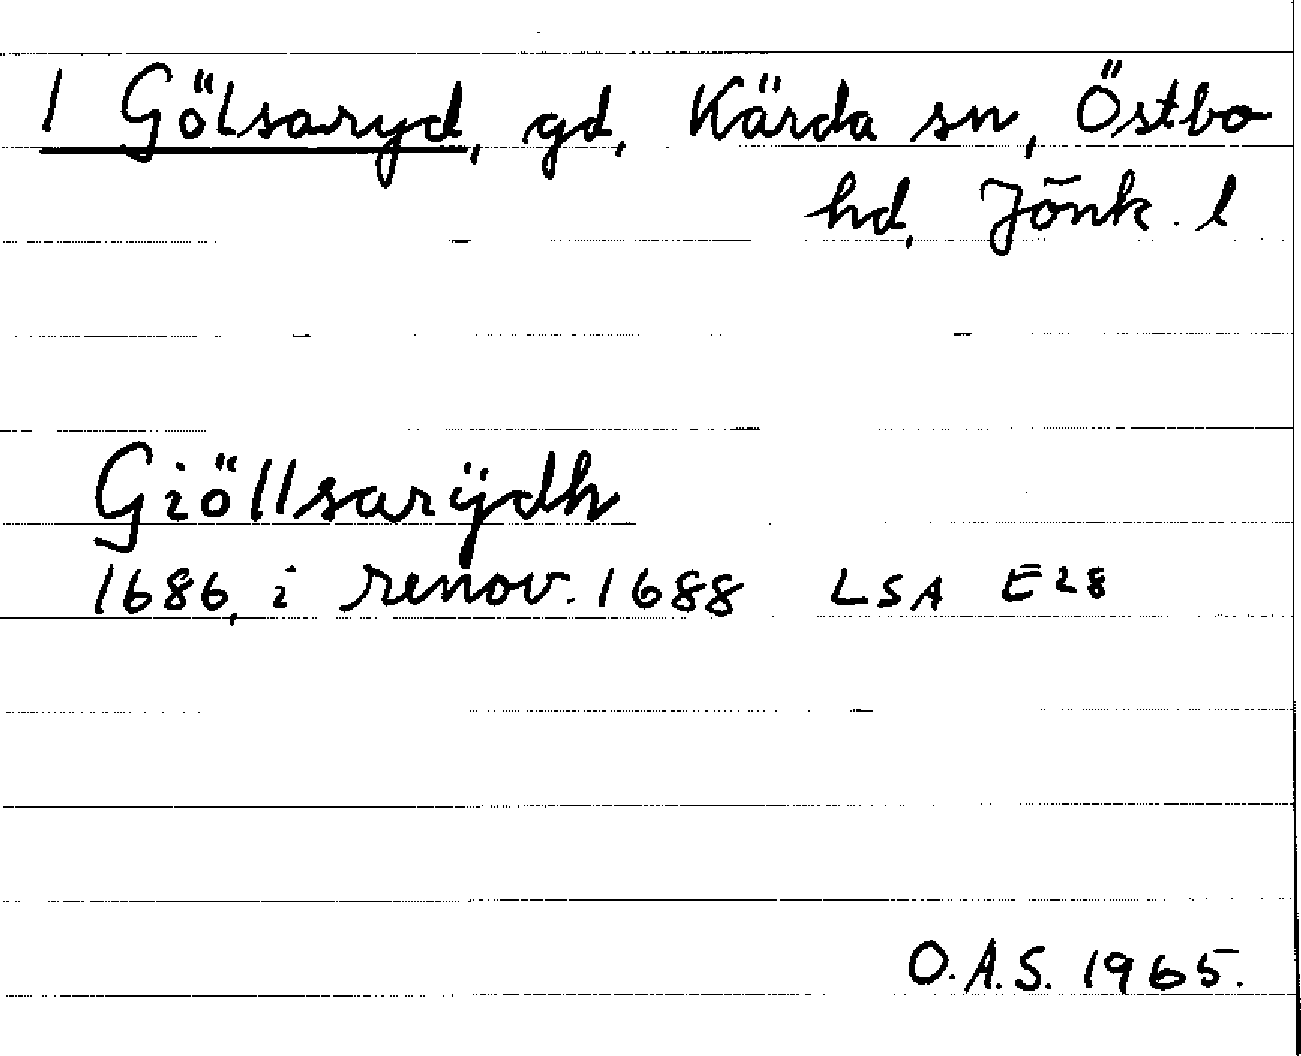 1 Gölsaryd, gd, Kärda sn, Östbo
hd, Jönk. l
Giöllsarÿdh
1686, i renov. 1688 LSA E28
O.A.S. 1965.